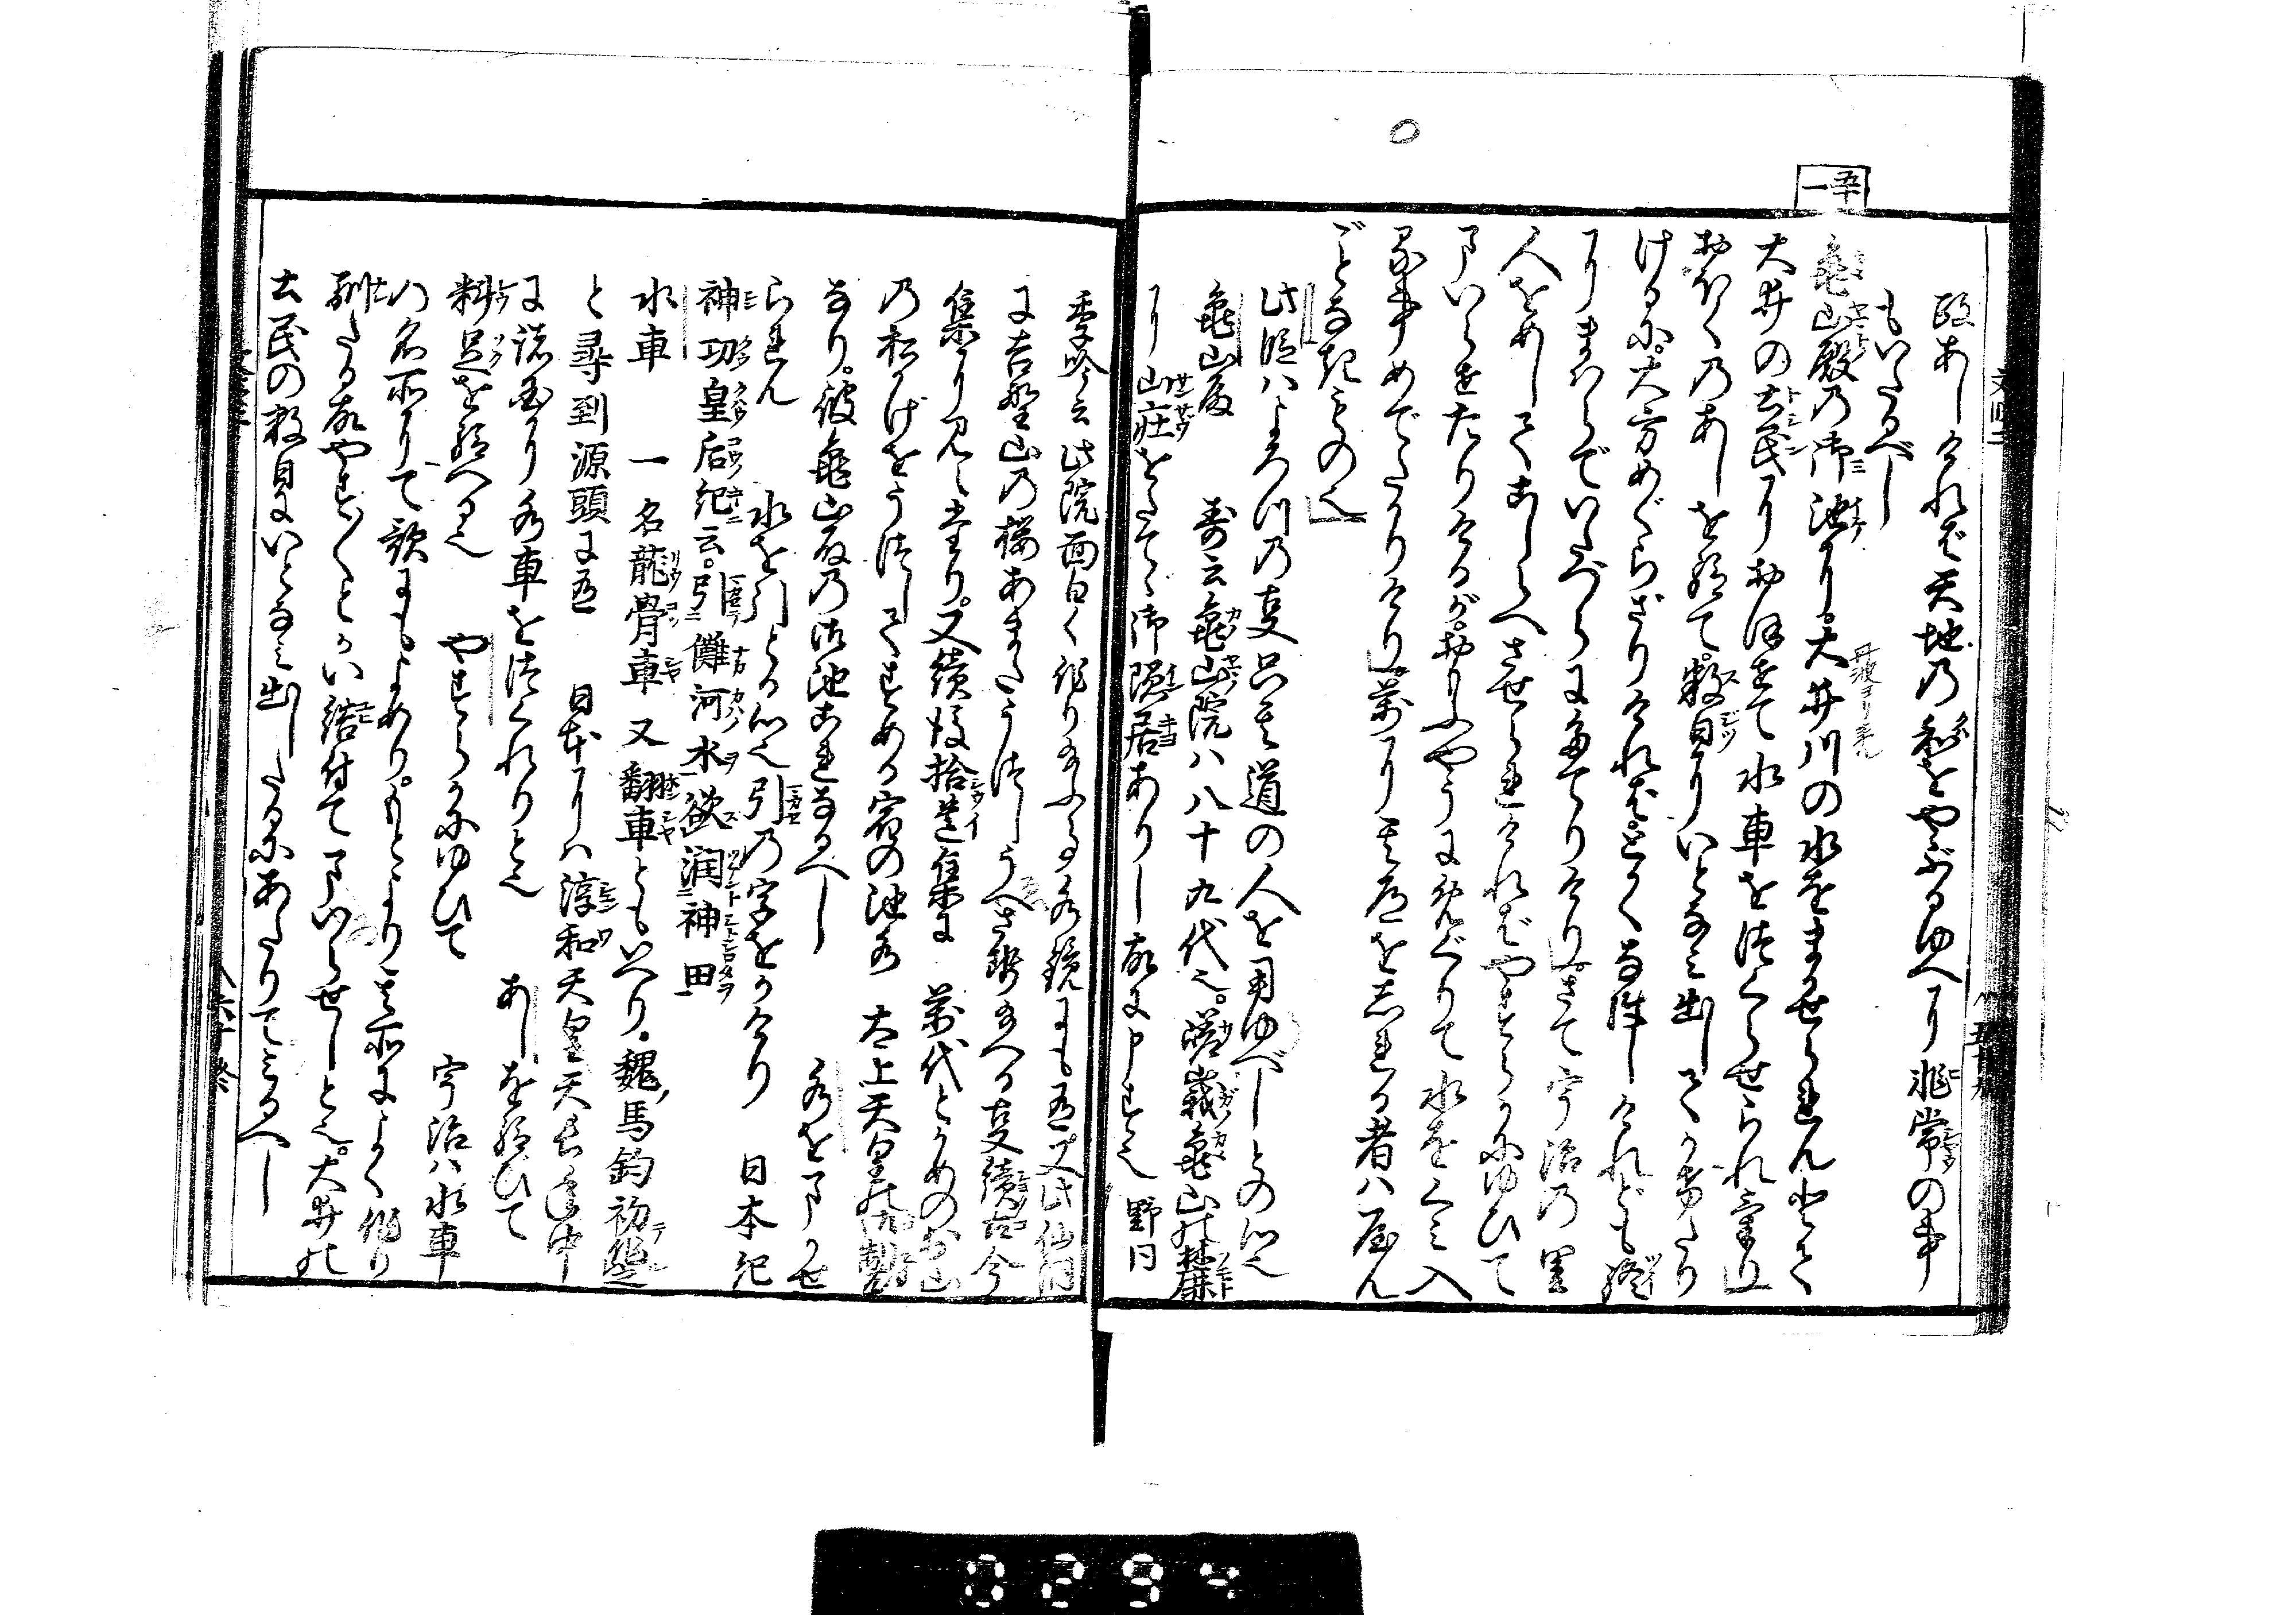 政あしけれバ天地の和をやぶるゆへに非常の事
もいたるべし
五十一
亀山殿の御池に。大井川の水をまかせられんとて
丹波ヨリ来ル
大井の土民におほせて水車を作らせられけり
おほくのあしを給て。数日にいとなミ出してかけたり
けるに。大方めぐらざりけれバ。とかくなをしけれども終
にまはらでいたづらにたてりけり。さて宇治の里
人をめしてこしらへさせられけれバやすらかにゆひて
まいらせたりけるが。おもふやうにめぐりて水をくミ入
る事めでたかりけり。萬に其道をしれる者ハやん
ごとなきもの也
此段ハよろづの事只其道の人を用ゆべしとの心也
亀山殿　寿云亀山院ハ八十九代也。嵯峨亀山の麓
に山荘をたてゝ御隠居ありし故に申す也　野同
季吟云此院面白く作り給ふ事
に吉野山の桜あまたうつしうへさせ給へる事続古今
集に見え侍り。又続後拾遺集に　萬代とかめのお山
の松かげをうつしてすめる宿の池水　太上天皇御製
なり。彼亀山殿の御池これなるへし　水をまかせ
られん　水を引とる心也引の字をかけり　日本紀
神功皇后紀云。引儺河水欲潤神田
水車　一名龍骨車　又翻車ともいへり。魏馬鈞初製
と尋到源頭に有　日本にハ淳和天皇天長年中
に諸国に水車をつくれりと也　あしを給ひて
料足を給へる也　やすらかにゆひて　宇治ハ水車
の名所にて歌にもよめり。もとより其所によく作り
馴たる故やす／＼とゆい結付てまいらせしと也。大井の
土民の数日にいとなミ出したるにあたりてミるへし